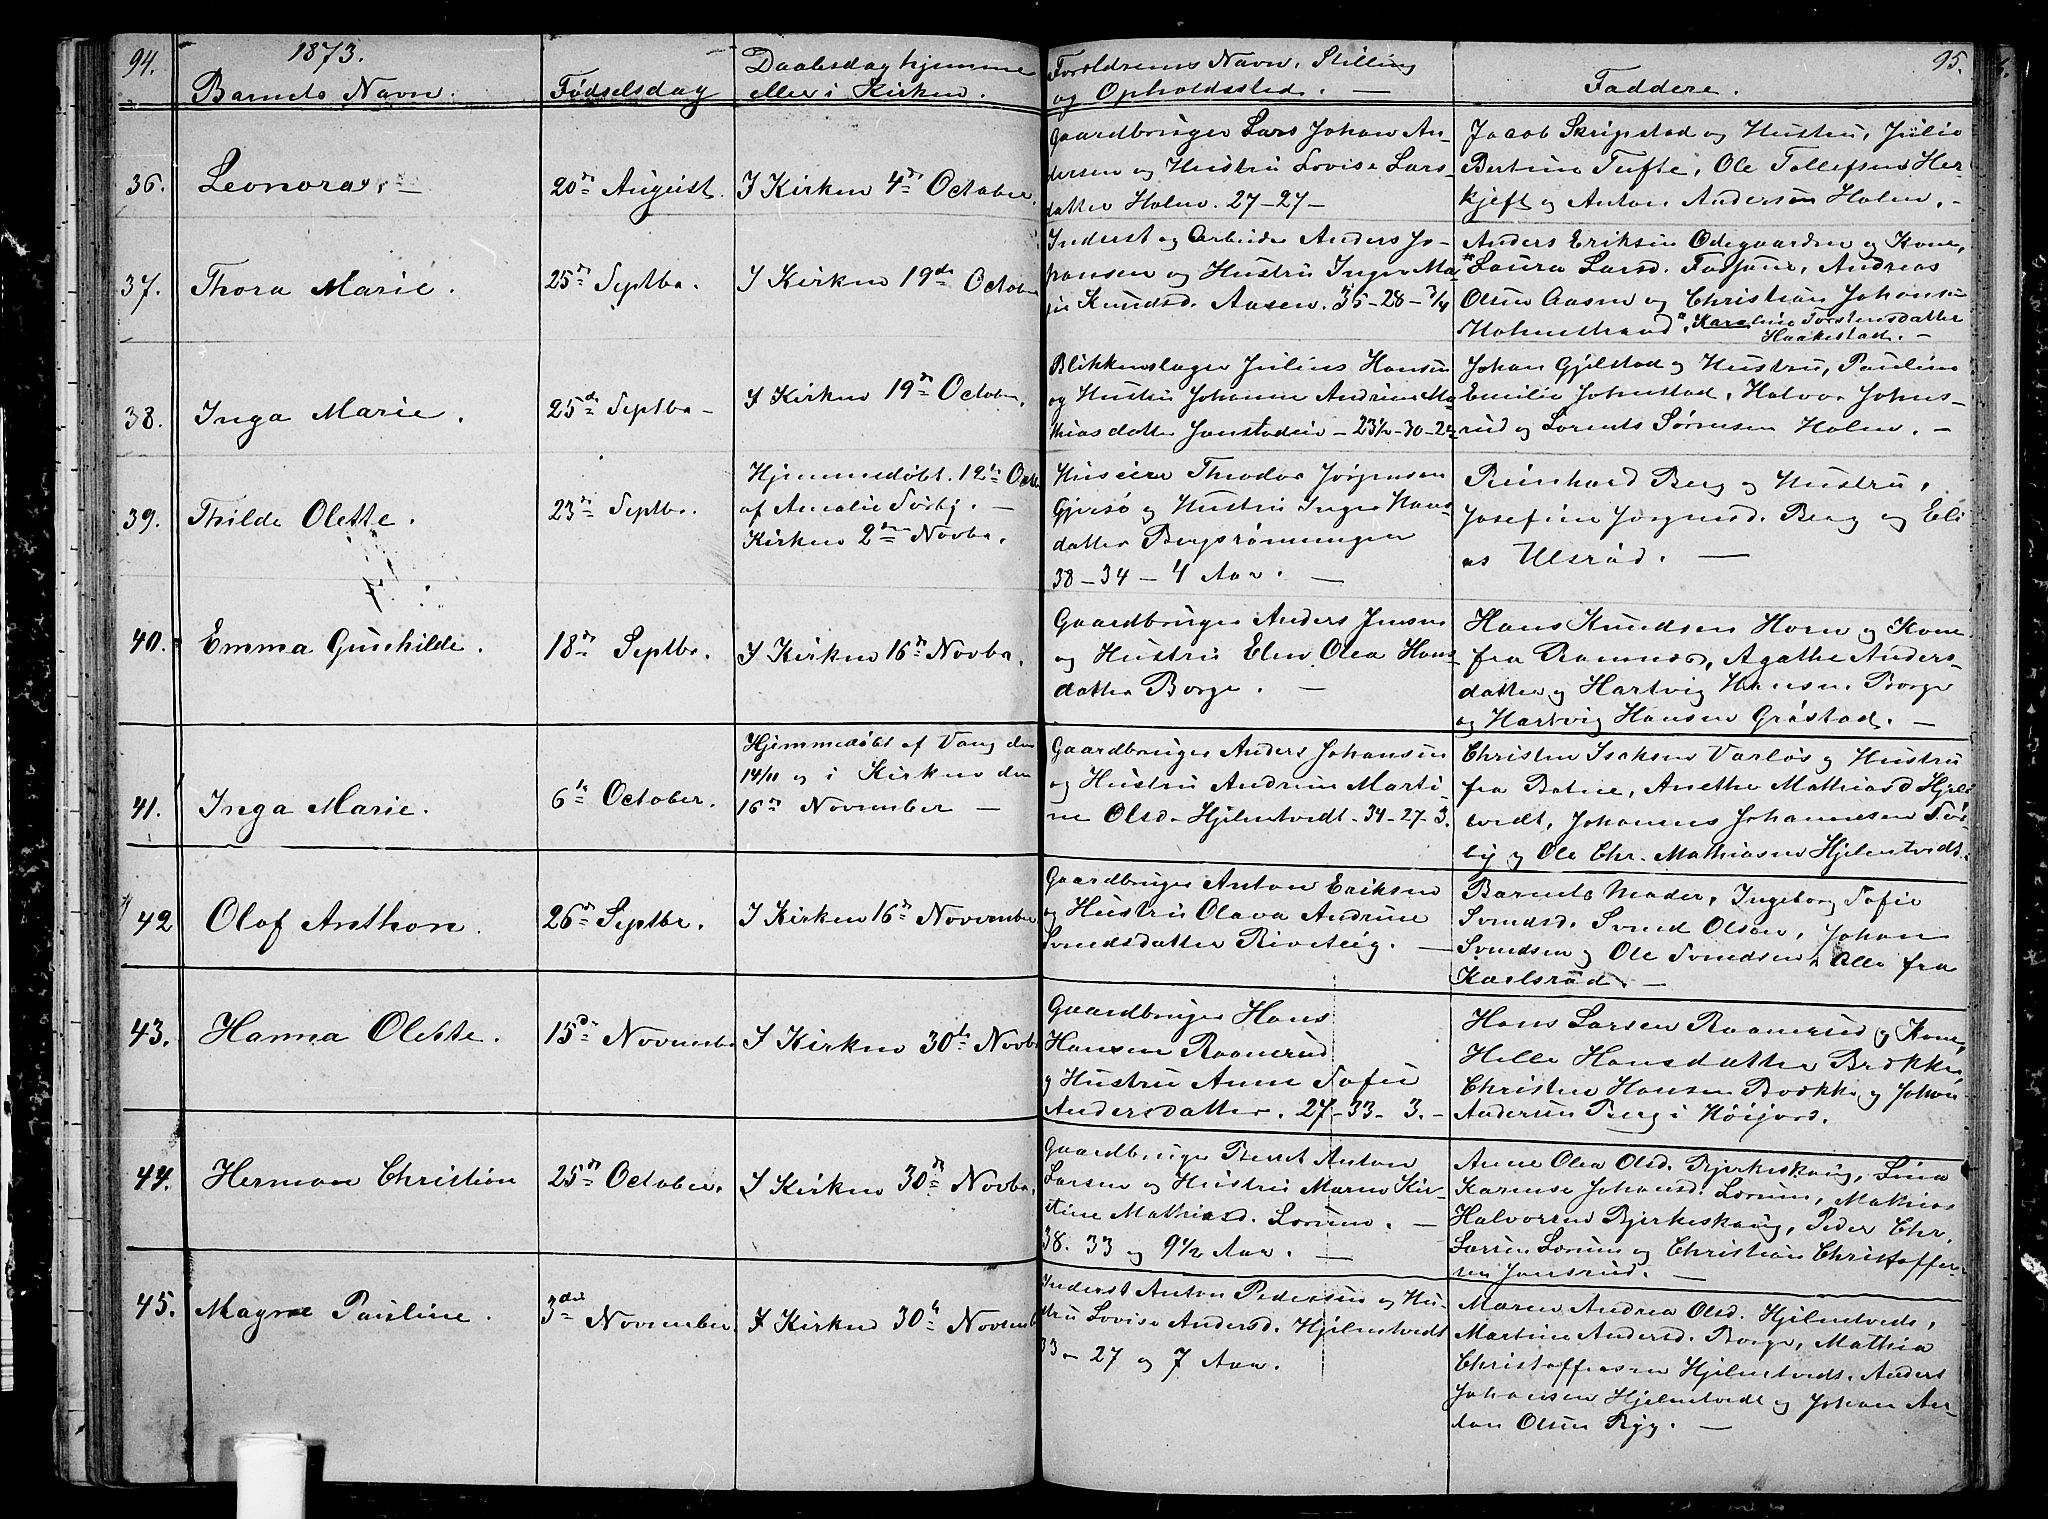 94.
1873.
Barnets Navn.
Fødselsdag
Daabsdag hjemme
eller i Kirken.
Forældrenes Navn, Stilling
og Opholdssted. —
Faddere.
95.
36.
Leonora. —
20de August.
I Kirken 4de October.
Gaardbruger Lars Johan An-
dersen og Hustru Lovise Lars-
datter Holm. 27-27-
Jacob Skripstad og Hustru, Julie
Bertine Tufte, Ole Tollefsen Her-
kjeft og Anton Andersen Holm. —
37.
Thora Marie.
25de Septbr.
I Kirken 19de October
Inderst og Arbeider Anders Jo-
hansen og Hustru Inger Ma-
rie Knudsd. Aasen. 35-28-3/4
Anders Eriksen Ødegaarden og Kone,
Laura Larsd. Andreas
Olsen Aasen og Christian Johansen
Holmestrand, Karoline Torstensdatter
Haakestad. —
38.
Inga Marie.
25de Septbr —
I Kirken 19de October.
Blikkenslager Julius Hansen
og Hustru Johanne Andrine Ma-
thiasdatter Jonstadeie — 23½-30-2
Johan Gjelstad og Hustru, Pauline
Emilie Johnstad, Halvor Johns-
rud og Lorents Sørensen Holm. —
39.
Thilde Olette.
23de Septbr.
Hjemmedøbt. 12te Octbr
af Amalie Sørbj. —
Kirken 2den Novbr.
Huseier Theodor Jørgensen
Gjersø og Hustru Inger Hans-
datter Bergsrønningen
38-34-4 Aar. —
Reinhard Berg og Hustru,
Josefine Jørgensd. Berg og Eli
as Ulsrød. —
40.
Emma Gunhilde.
18de Septbr.
I Kirken 16de Novbr.
Gaardbruger Anders Jensen
og Hustru Elen Olea Hans-
datter Borge. —
Hans Knudsen Horn og Kone
fra Ramnæs, Agathe Anders-
datter og Hartvig Hansen Borge
og Hartvig Hansen Grøstad. —
41.
Inga Marie.
6te October.
Hjemmedøbt af Vang den
14/11 og i Kirken den
16de November —
Gaardbruger Anders Johansen
og Hustru Andrine Marti-
ne Olsd. Hjelmtvedt-34-27-3.
Christen Isaksen Varløs og Hustru
fra Botne, Anethe Mathiasd Hjelm
tvedt, Johannes Johannesen Sør-
by og Ole Chr. Mathiasen Hjelmtvedt.
42
Olaf Anthon.
26de Septbr.
I Kirken 16de November
Gaardbruger Anton Eriksen
og Hustru Olava Andrine
Svendsdatter Riveteig. —
Barnets Moder, Ingeborg Sofie
Svendsd. Svend Olsen, Johan
Svendsen og Ole Svendsen, Alle fra
Karlsrød. —
43.
Hanna Olette.
15de Novembr
I Kirken 30te Novbr
Gaardbruger Hans
Hansen Raanerud
og Hustru Anne Sofie
Andersdatter. 27-33-3.-
Hans Larsen Raanerud og Kone,
Helle Hansdatter Brekke,
Christen Hansen Brekke og Johan
Andersen Berg i Høijord.
44.
Herman Christian
25de October.
I Kirken 30te Novbr.
Gaardbruger Bernt Anton
Larsen og Hustru Maren Kir-
stine Mathiasd. Lorum. —
38. 33 og 9½ Aar. —
Anne Olea Olsd. Bjerkeskaug, Lina
Karense Johansd. Lorum, Mathias
Halvorsen Bjerkeskaug, Peder Chr.
Larsen Lorum og Christian Christoffer-
sen Jonsrud. —
45.
Magne Pauline.
3die November.
I Kirken 30te Novemb
Inderst Anton Pedersen og Hu-
stru Lovise Andersd. Hjelmtvedt
33-27 og 7 Aar.
Maren Andrea Olsd. Hjelmtvedt,
Martine Andersd. Borge, Mathia
Christoffersen Hjelmtvedt, Anders
Johansen Hjelmtvedt og Johan An-
ton Olsen Ryg. —